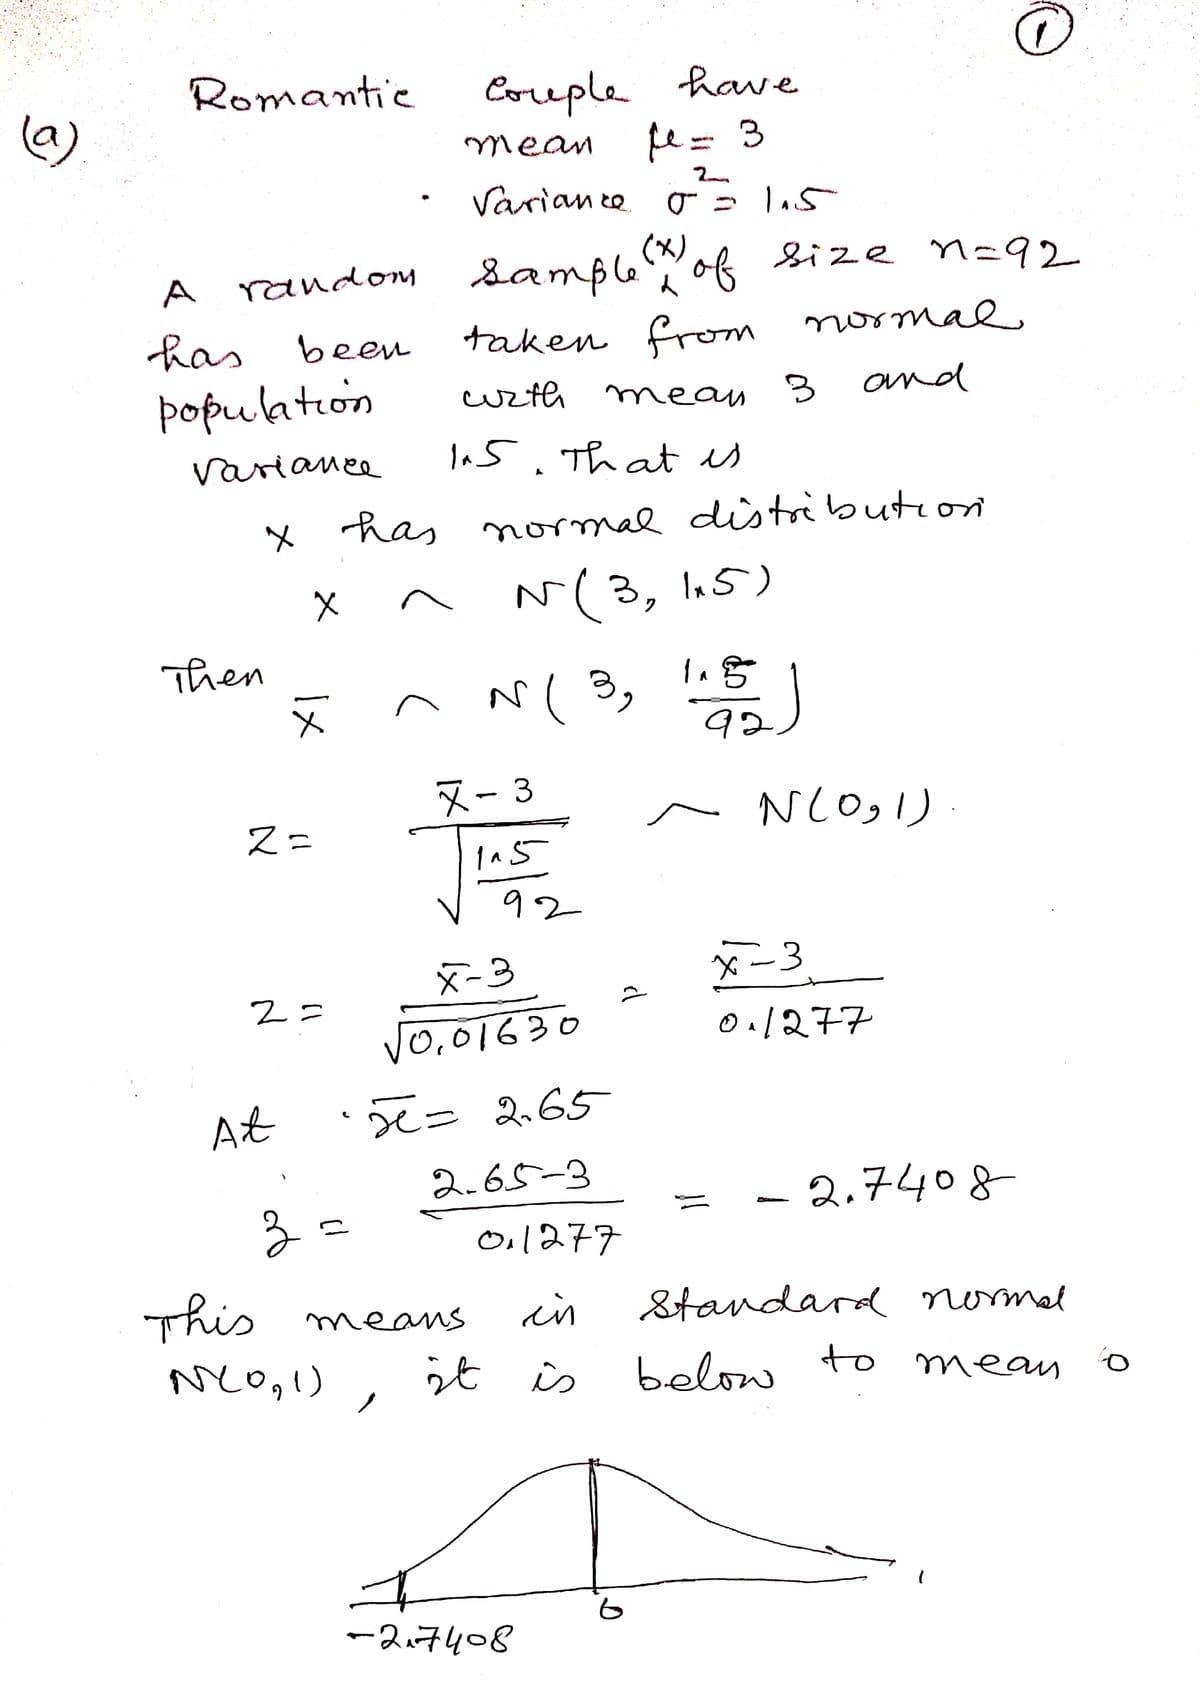 1
Romantic Couple have
(a)
mean μ = 3
Variance σ² = 1.5
A random sample (x) of size n=92
has been taken from normal
population with mean 3 and
variance 1.5. That is
X has normal distribution
X ~ N(3, 1.5)
Then X̄ ~ N(3, 1.5/92)
Z = (X̄ - 3)/√(1.5/92) ~ N(0,1).
Z = (X̄-3)/√0.01630 = (X̄-3)/0.1277
At x̄ = 2.65
z = (2.65-3)/0.1277 = - 2.7408
This means in Standard normal
N(0,1), it is below to mean 0
-2.7408 0